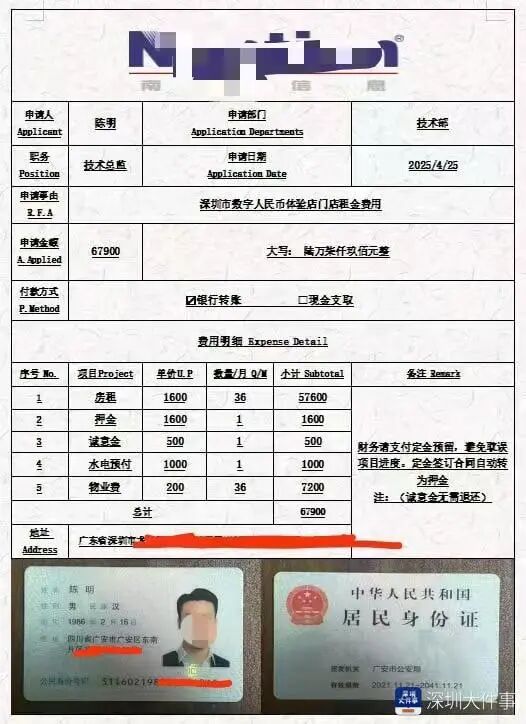 申请人 Applicant 陈明 申请部门 Application Departments 技术部
职务 Position 技术总监 申请日期 Application Date 2025/4/25
申请事由 R.F.A 深圳市数字人民币体验店门店租金费用
申请金额 A.Applied 67900 大写: 陆万柒仟玖佰元整
付款方式 P.Method ☑银行转账 □现金支取
费用明细 Expense Detail
序号 No. 项目Project 单价U.P 数量/月 Q/M 小计 Subtotal 备注 Remark
1 房租 1600 36 57600
2 押金 1600 1 1600
3 诚意金 500 1 500
4 水电预付 1000 1 1000
5 物业费 200 36 7200
总计 67900
财务请支付定金预留，避免耽误
项目进度。定金签订合同自动转
为押金
注：（诚意金无需退还）
地址 Address 广东省深圳市
姓名 陈明
男 民族 汉
1986 年 2 月 16 日
四川省广安市广安区东南
公民身份号码 511602198
中华人民共和国
居民身份证
签发机关 广安市公安局
有效期限 2021.11.21-2041.11.21
深圳大件事